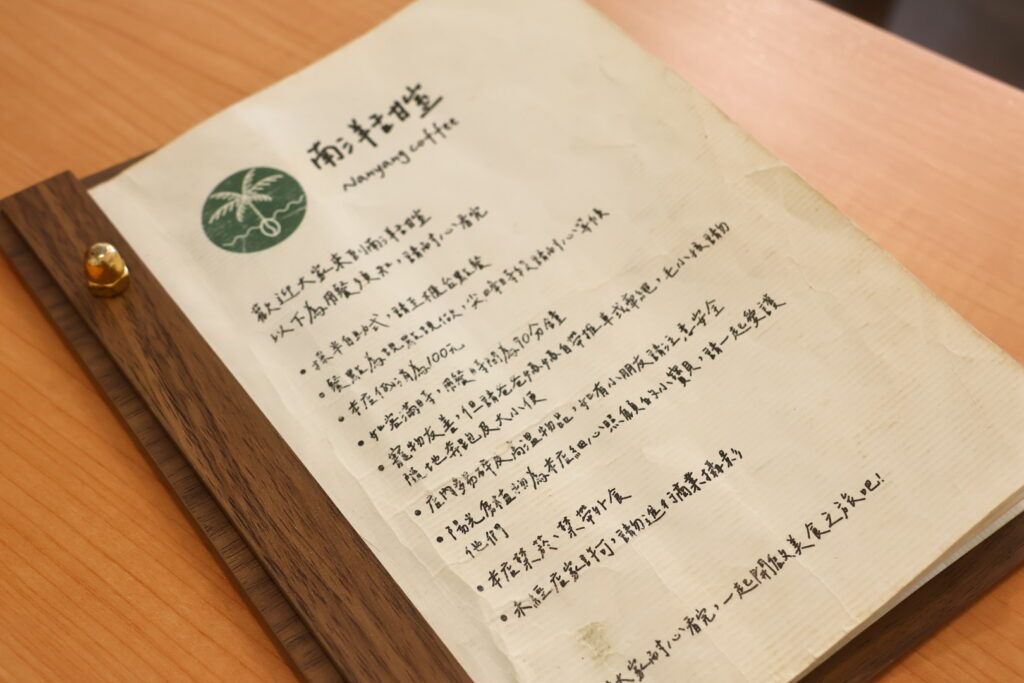 南洋喆甘堂
Nanyang coffee
歡迎大家來到南洋喆甘堂
以下為用餐須知，請耐心看完
• 採半自助式，請至櫃台點餐
• 餐點為現點現做，尖峰時段請耐心等候
• 本店低消為100元
• 如客滿時，用餐時間為90分鐘
• 寵物友善，但請爸爸媽媽自帶推車或牽繩，七小孩請勿
隨地奔跑及大小便
• 店內多易碎及高溫物品，如有小朋友請注意安全
• 陽光房植物為本店細心照顧的小寶貝，請一起愛護
他們
• 本店禁菸、禁帶外食
• 未經店家許可，請勿進行商業攝影
大家耐心看完，一起開啟美食之旅吧！